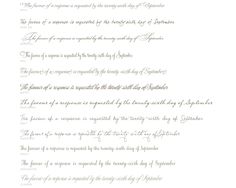 The favour of a response is requested by the twenty-sixth day of September
The favour of a response is requested by the twenty-sixth day of September
The favour of a response is requested by the twenty-sixth day of September
The favour of a response is requested by the twenty-sixth day of September
The favour of a response is requested by the twenty-sixth day of September
The favour of a response is requested by the twenty-sixth day of September
The favour of a response is requested by the twenty-sixth day of September
The favour of a response is requested by the twenty-sixth day of September
The favour of a response is requested by the twenty-sixth day of September
The favour of a response is requested by the twenty-sixth day of September
The favour of a response is requested by the twenty-sixth day of September
The favour of a response is requested by the twenty-sixth day of September